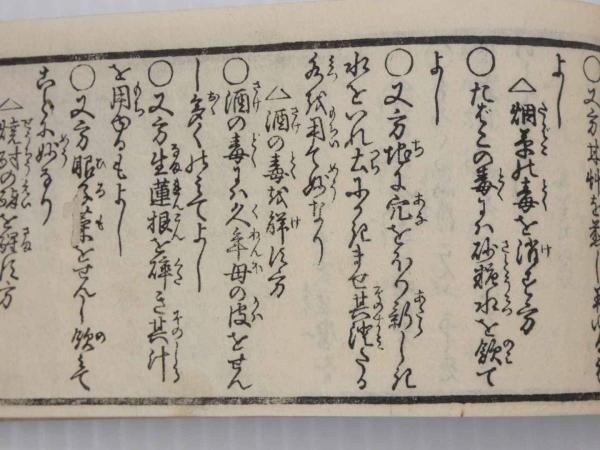 〇又方甘草を煎し
よし
△烟草の毒を消す方
〇たばこの毒には砂糖水を飲て
よし
〇又方地に穴をほり新しき
水をいれ土にかきませ其澄たる
水を用て妙なり
△酒の毒を解す方
〇酒の毒には久年母の皮をせん
し多くのみてよし
〇又方生蓮根を碎き其汁
を用ゆるもよし
〇又方眼子菜をせんし飲て
こと〴〵く妙なり
△焼酎の酔を醒す方